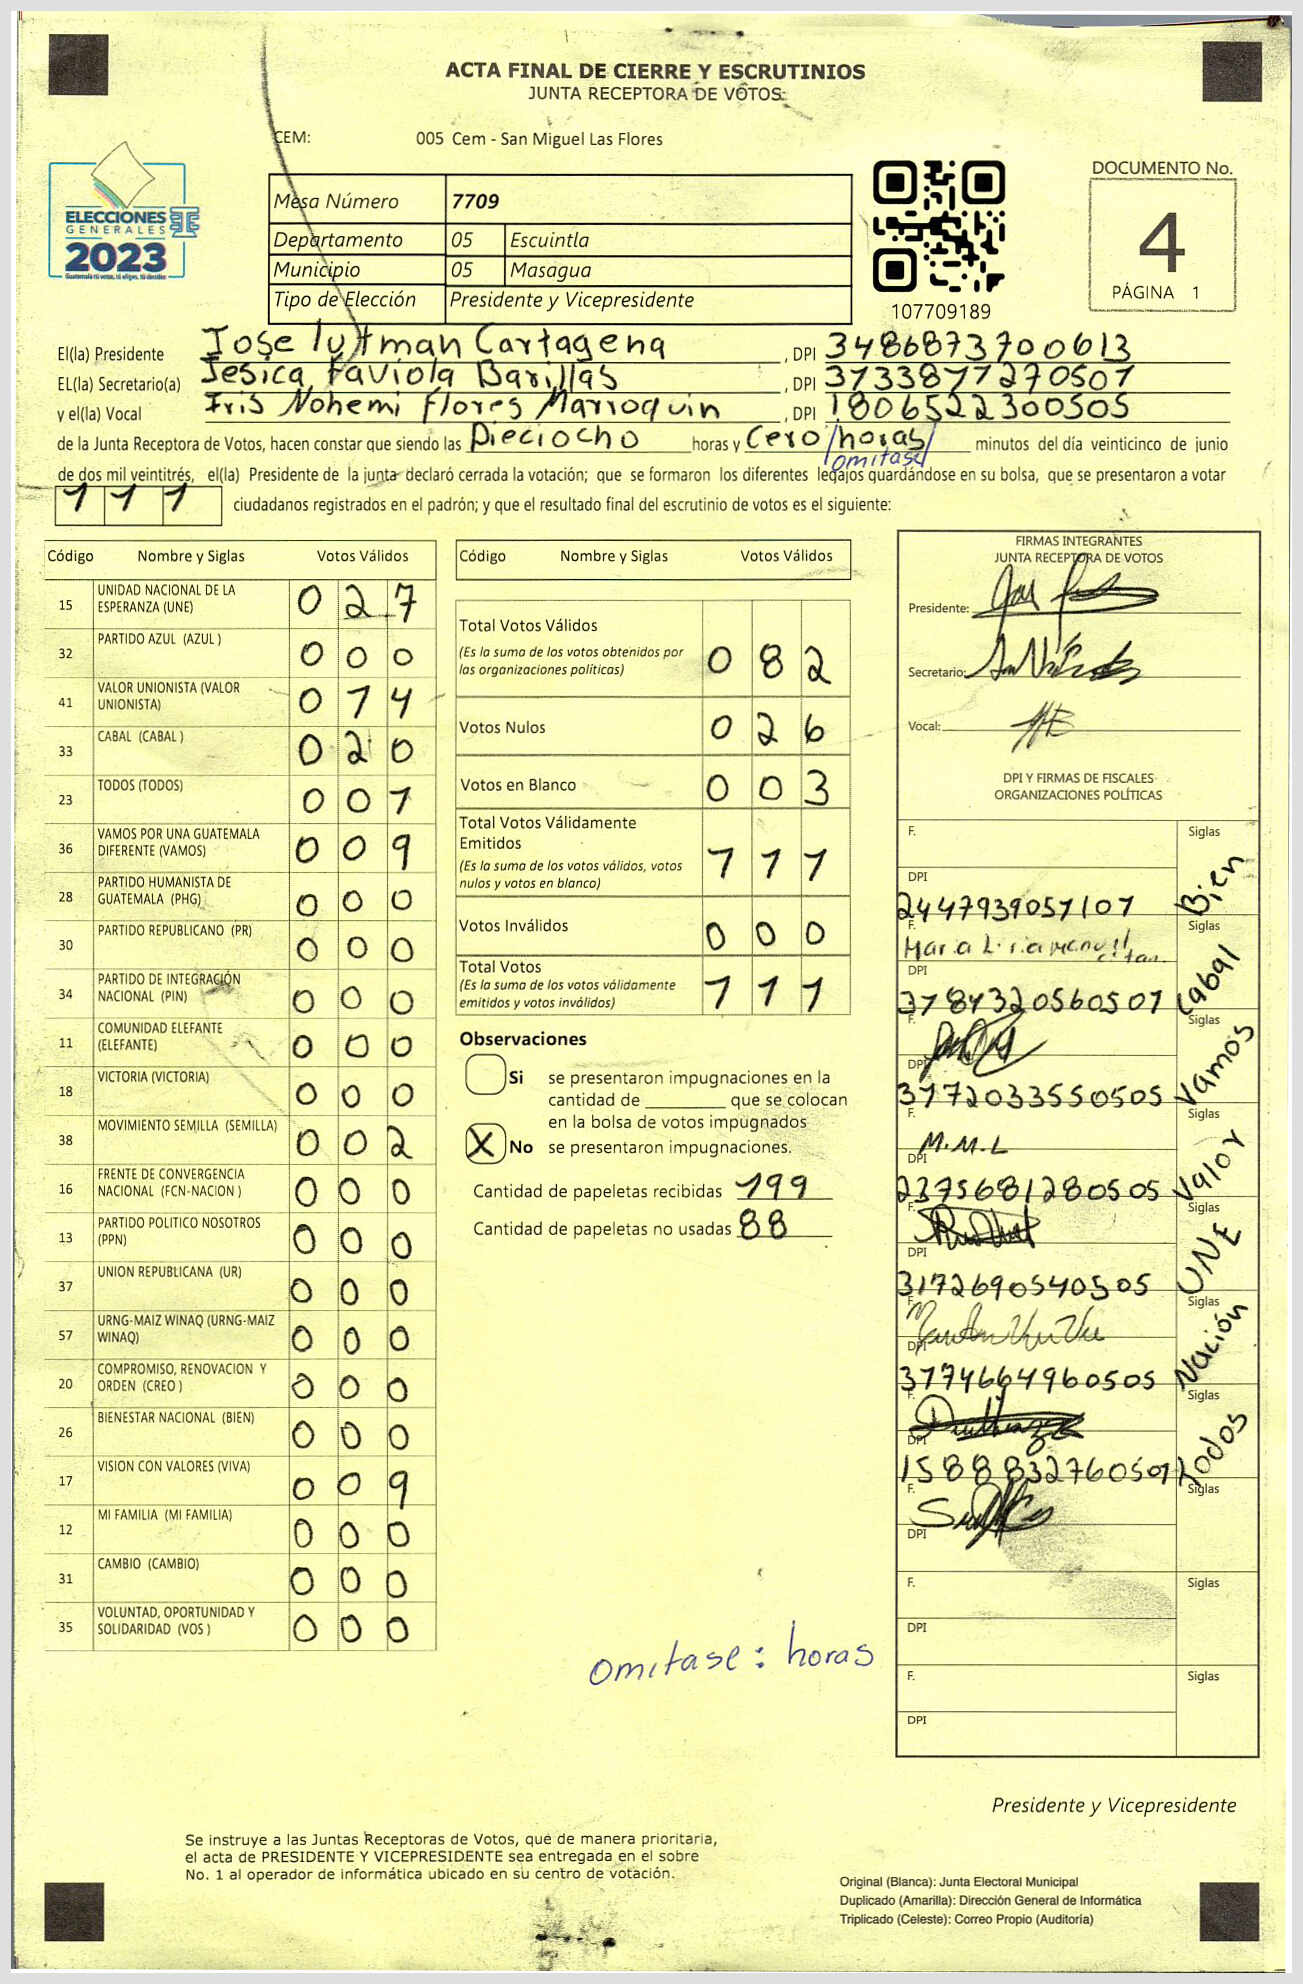 ACTA FINAL DE CIERRE Y ESCRUTINIOS
JUNTA RECEPTORA DE VOTOS
CEM: 005 Cem - San Miguel Las Flores
ELECCIONES
GENERALES
2023
Mesa Número 7709
Departamento 05 Escuintla
Municipio 05 Masagua
Tipo de Elección Presidente y Vicepresidente
107709189
DOCUMENTO No.
4
PÁGINA 1
El(la) Presidente Jose lutman Cartagena , DPI 3486873700613
EL(la) Secretario(a) Jesica Faviola Barillas , DPI 3733871270501
y el(la) Vocal Iris Nohemi flores Marroquin , DPI 1806522300505
de la Junta Receptora de Votos, hacen constar que siendo las Dieciocho horas y Cero /horas/ minutos del día veinticinco de junio
omitase
de dos mil veintitrés, el(la) Presidente de la junta declaró cerrada la votación; que se formaron los diferentes legajos guardándose en su bolsa, que se presentaron a votar
111 ciudadanos registrados en el padrón; y que el resultado final del escrutinio de votos es el siguiente:
Código Nombre y Siglas Votos Válidos
15 UNIDAD NACIONAL DE LA ESPERANZA (UNE) 0 2 7
32 PARTIDO AZUL (AZUL ) 0 0 0
41 VALOR UNIONISTA (VALOR UNIONISTA) 0 1 4
33 CABAL (CABAL ) 0 2 0
23 TODOS (TODOS) 0 0 1
36 VAMOS POR UNA GUATEMALA DIFERENTE (VAMOS) 0 0 9
28 PARTIDO HUMANISTA DE GUATEMALA (PHG) 0 0 0
30 PARTIDO REPUBLICANO (PR) 0 0 0
34 PARTIDO DE INTEGRACIÓN NACIONAL (PIN) 0 0 0
11 COMUNIDAD ELEFANTE (ELEFANTE) 0 0 0
18 VICTORIA (VICTORIA) 0 0 0
38 MOVIMIENTO SEMILLA (SEMILLA) 0 0 2
16 FRENTE DE CONVERGENCIA NACIONAL (FCN-NACION ) 0 0 0
13 PARTIDO POLITICO NOSOTROS (PPN) 0 0 0
37 UNION REPUBLICANA (UR) 0 0 0
57 URNG-MAIZ WINAQ (URNG-MAIZ WINAQ) 0 0 0
20 COMPROMISO, RENOVACION Y ORDEN (CREO ) 0 0 0
26 BIENESTAR NACIONAL (BIEN) 0 0 0
17 VISION CON VALORES (VIVA) 0 0 9
12 MI FAMILIA (MI FAMILIA) 0 0 0
31 CAMBIO (CAMBIO) 0 0 0
35 VOLUNTAD, OPORTUNIDAD Y SOLIDARIDAD (VOS ) 0 0 0
Código Nombre y Siglas Votos Válidos
Total Votos Válidos 0 8 2
(Es la suma de los votos obtenidos por
las organizaciones políticas)
Votos Nulos 0 2 6
Votos en Blanco 0 0 3
Total Votos Válidamente
Emitidos 1 1 1
(Es la suma de los votos válidos, votos
nulos y votos en blanco)
Votos Inválidos 0 0 0
Total Votos 1 1 1
(Es la suma de los votos válidamente
emitidos y votos inválidos)
Observaciones
Si se presentaron impugnaciones en la
cantidad de ________ que se colocan
en la bolsa de votos impugnados
X No se presentaron impugnaciones.
Cantidad de papeletas recibidas 199
Cantidad de papeletas no usadas 88
omitase: horas
FIRMAS INTEGRANTES
JUNTA RECEPTORA DE VOTOS
Presidente:
Secretario:
Vocal:
DPI Y FIRMAS DE FISCALES
ORGANIZACIONES POLÍTICAS
F. Siglas
DPI 2447939051101 Bien
F. Siglas
DPI 3784320560501 Cabal
F. Siglas
DPI 3172033550505 Vamos
F. M.M.L Siglas
DPI 2375681280505 Valor
F. Siglas
DPI 3172690540505 UNE
F. Siglas
DPI 3174664960505 Nación
F. Siglas
DPI 1588832760501 todos
F. Siglas
DPI
F. Siglas
DPI
F. Siglas
DPI
Presidente y Vicepresidente
Se instruye a las Juntas Receptoras de Votos, que de manera prioritaria,
el acta de PRESIDENTE Y VICEPRESIDENTE sea entregada en el sobre
No. 1 al operador de informática ubicado en su centro de votación.
Original (Blanca): Junta Electoral Municipal
Duplicado (Amarilla): Dirección General de Informática
Triplicado (Celeste): Correo Propio (Auditoría)